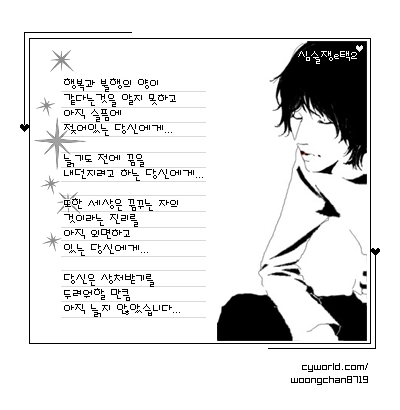 심술쟁e택2
행복과 불행의 양이
같다는것을 알지 못하고
아직 슬픔에
젖어있는 당신에게...
늙기도 전에 꿈을
내던지려고 하는 당신에게...
또한 세상은 꿈꾸는 자의
것이라는 진리를
아직 외면하고
있는 당신에게...
당신은 상처받기를
두려워할 만큼
아직 늙지 않았습니다...
cyworld.com/
woongchan8719